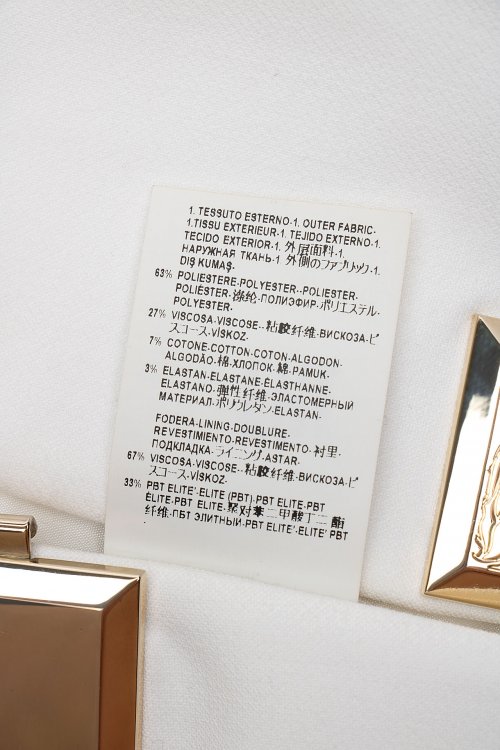 1. TESSUTO ESTERNO-1. OUTER FABRIC-
1.TISSU EXTERIEUR-1. TEJIDO EXTERNO-1.
TECIDO EXTERIOR-1. 外层面料-1.
НАРУЖНАЯ ТКАНЬ-1. 外側のファブリック-1.
DIŞ KUMAŞ-
63% POLIESTERE-POLYESTER-.POLIESTER-
POLIÉSTER-涤纶-ПОЛИЭФИР-ポリエステル-
POLYESTER-
27% VISCOSA-VISCOSE-.粘胶纤维-ВИСКОЗА-ビ
スコース-VİSKOZ-
7% COTONE-COTTON-COTON-ALGODON-
ALGODÃO-棉-ХЛОПОК-綿-PAMUK-
3% ELASTAN-ELASTANE-ÉLASTHANNE-
ELASTANO-弹性纤维-ЭЛАСТОМЕРНЫЙ
МАТЕРИАЛ-ポリウレタン-ELASTAN-
FODERA-LINING-DOUBLURE-
REVESTIMIENTO-REVESTIMENTO-衬里-
ПОДКЛАДКА-ライニング-ASTAR-
67% VISCOSA-VISCOSE-.粘胶纤维-ВИСКОЗА-ビ
スコース-VİSKOZ-
33% PBT ELITE'-ELITE (PBT)-PBT ELITE-PBT
ÉLITE-PBT ELITE-聚对苯二甲酸丁二酯
纤维-ПБТ ЭЛИТНЫЙ-PBT ELITE'-ELITE' PBT